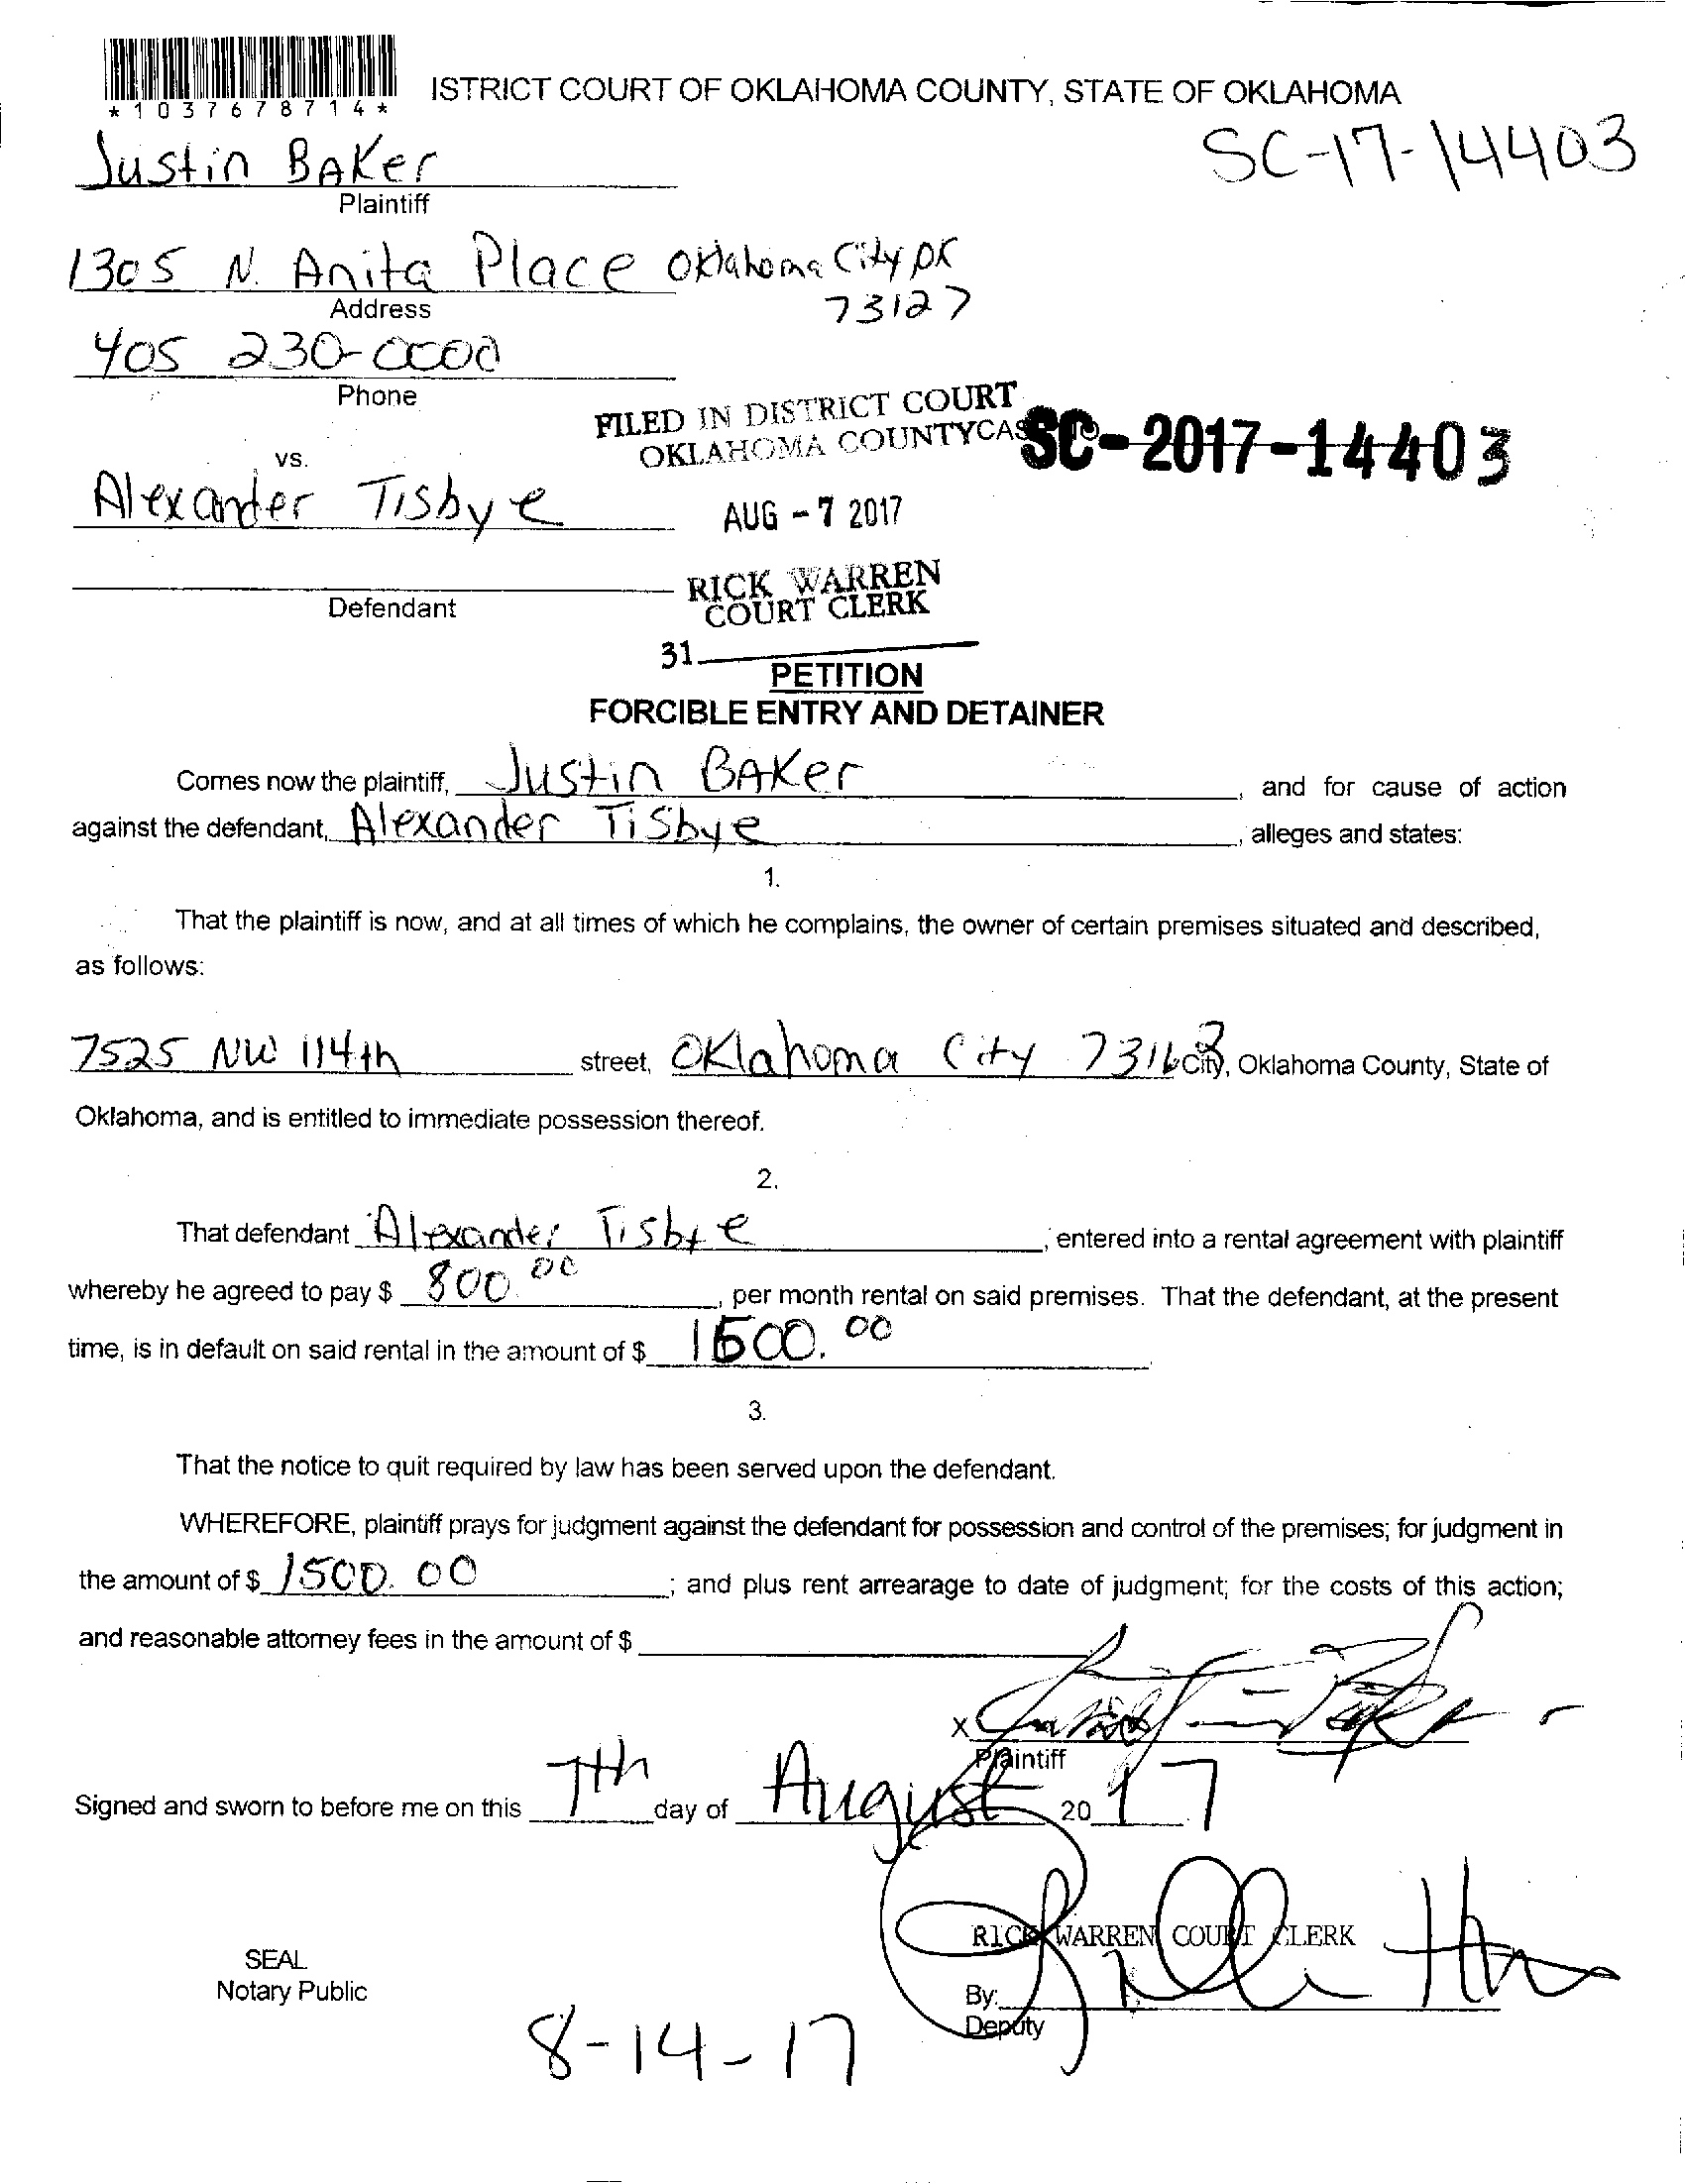 *1037678714*
ISTRICT COURT OF OKLAHOMA COUNTY, STATE OF OKLAHOMA
SC-17-14403
Justin BAKer
Plaintiff
1305 N. Anita Place Oklahoma City OK
73127
Address
405 230-0000
Phone
FILED IN DISTRICT COURT
OKLAHOMA COUNTY
SC-2017-14403
vs.
Alexander Tisbye
AUG -7 2017
Defendant
RICK WARREN
COURT CLERK
31
PETITION
FORCIBLE ENTRY AND DETAINER
Comes now the plaintiff, Justin BAKer, and for cause of action
against the defendant, Alexander Tisbye, alleges and states:
1.
That the plaintiff is now, and at all times of which he complains, the owner of certain premises situated and described,
as follows:
7525 NW 114th street, Oklahoma City City, Oklahoma County, State of
Oklahoma, and is entitled to immediate possession thereof.
2.
That defendant Alexander Tisbye, entered into a rental agreement with plaintiff
whereby he agreed to pay $ 800.00, per month rental on said premises. That the defendant, at the present
time, is in default on said rental in the amount of $
3.
That the notice to quit required by law has been served upon the defendant.
WHEREFORE, plaintiff prays for judgment against the defendant for possession and control of the premises; for judgment in
the amount of $ 1500.00; and plus rent arrearage to date of judgment; for the costs of this action;
and reasonable attorney fees in the amount of $
x
Plaintiff
Signed and sworn to before me on this 7th day of August 2017
RICK WARREN COURT CLERK
SEAL
Notary Public
By:
Deputy
8-14-17